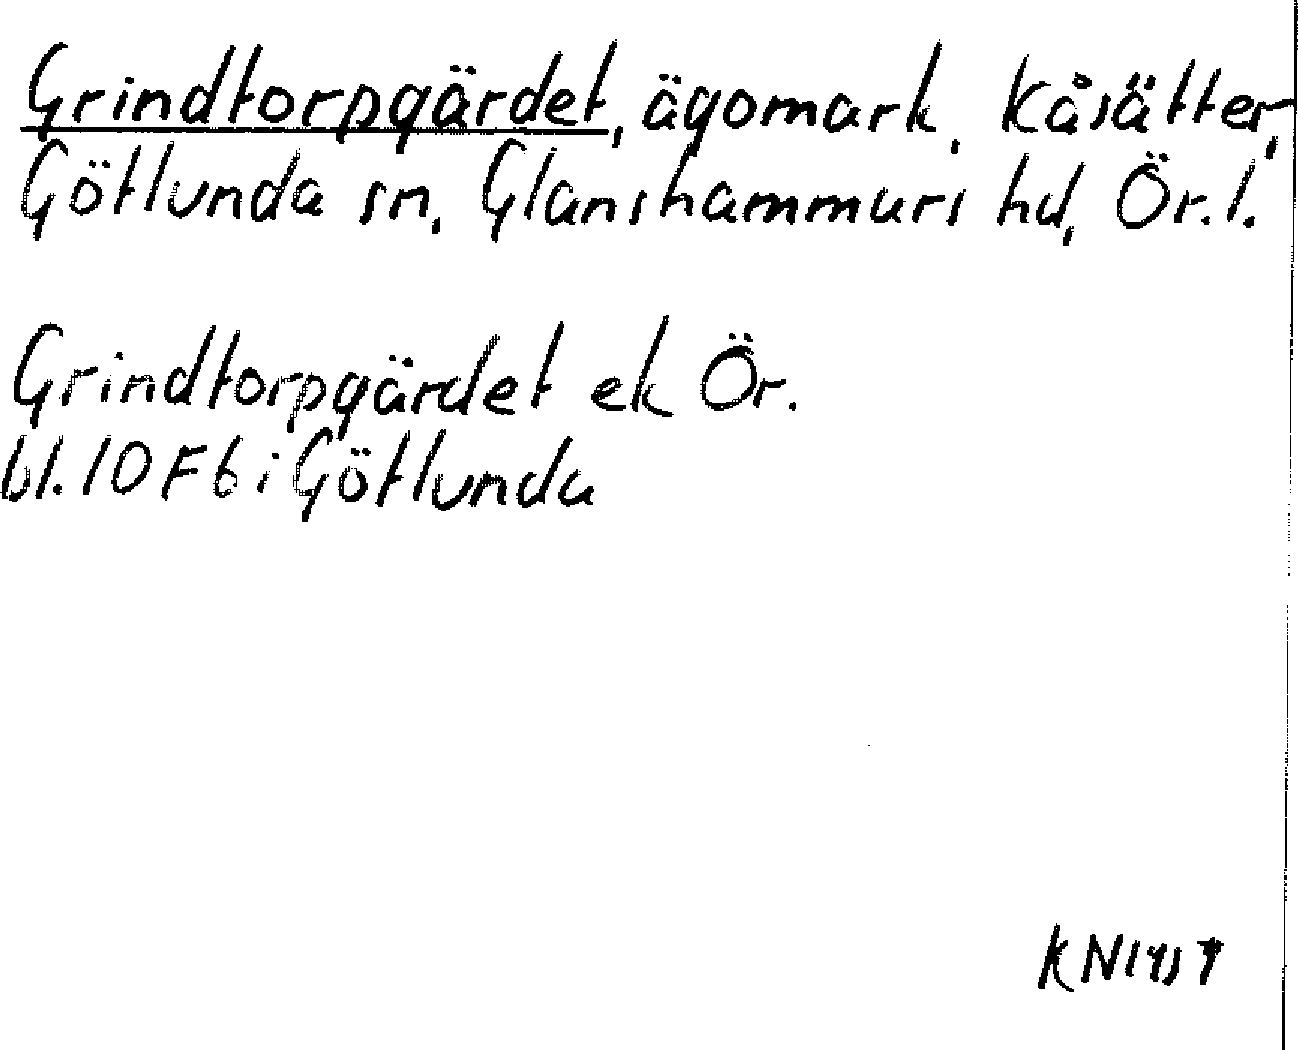 Grindtorpgärdet, ägomark, Kåsätter,
Götlunda sn, Glanshammars hd, Ör. l.
Grindtorpgärdet ek Ör.
bl. 10 F 6 i Götlunda
KN